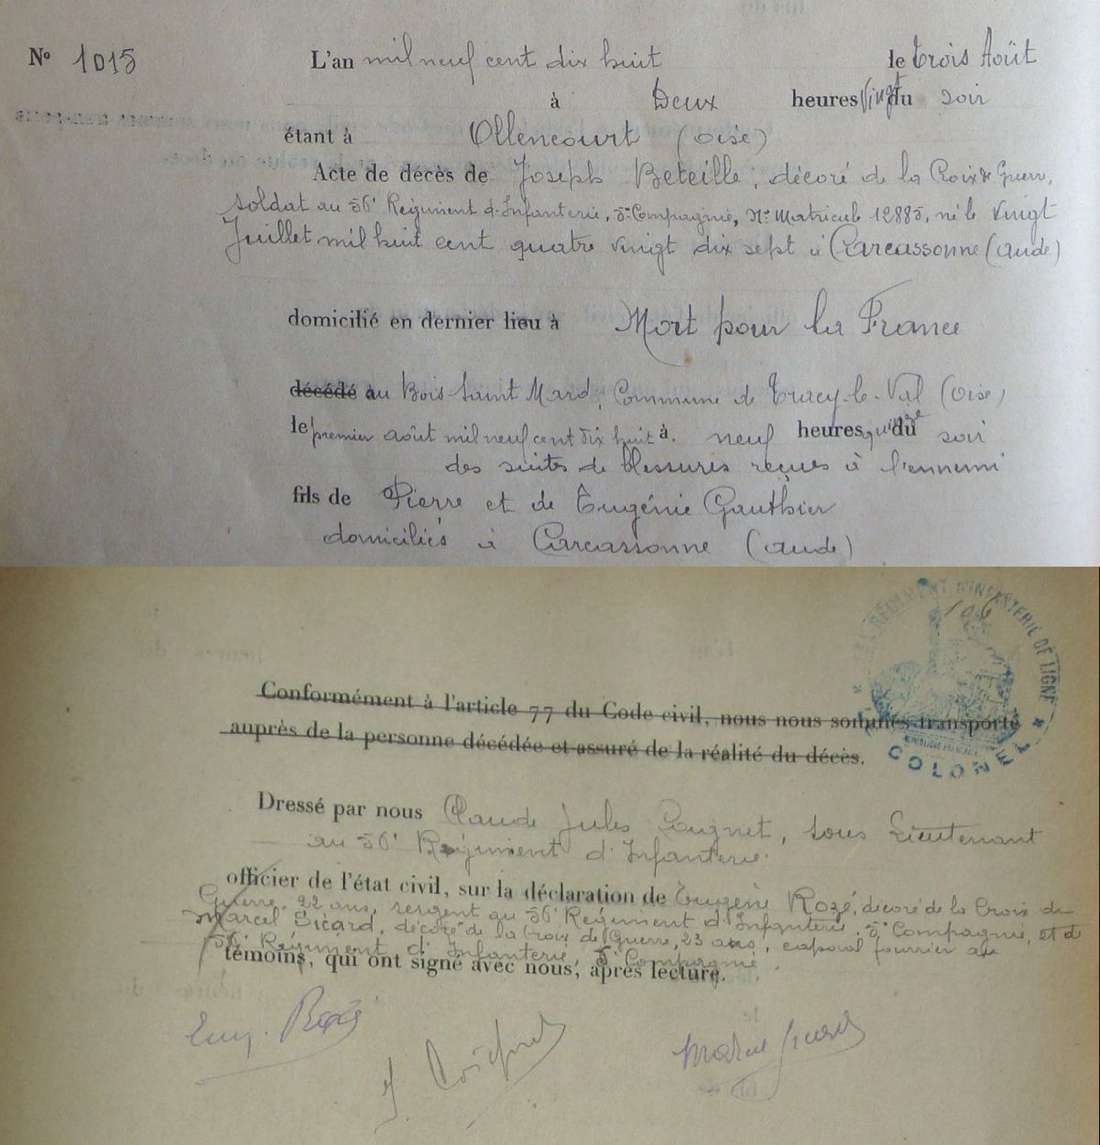 N° 1015 L'an mil neuf cent dix huit le trois Août
à Deux heures vingt du soir
étant à Ollencourt (Oise)
Acte de décès de Joseph Beteille, décoré de la Croix de Guerre,
soldat au 56e Régiment d'Infanterie, 5e Compagnie, No Matricule 12885, né le vingt
Juillet mil huit cent quatre vingt dix sept à Carcassonne (Aude)
domicilié en dernier lieu à Mort pour la France
décédé au Bois Saint Mard, Commune de Tracy-le-Val (Oise)
le premier août mil neuf cent dix huit à neuf heures quinze du soir
des suites de blessures reçues à l'ennemi
fils de Pierre et de Eugénie Gauthier
domiciliés à Carcassonne (Aude)
RÉGIMENT D'INFANTERIE DE LIGNE
COLONEL
Conformément à l'article 77 du Code civil, nous nous sommes transporté
auprès de la personne décédée et assuré de la réalité du décès.
Dressé par nous Claude Jules, sous Lieutenant
au 56e Régiment d'Infanterie.
officier de l'état civil, sur la déclaration de Eugène Rozé, décoré de la Croix de
Guerre, 22 ans, sergent au 56e Régiment d'Infanterie, 5e Compagnie, et d
Marcel Sicard, décoré de la Croix de Guerre, 23 ans, caporal fourrier au
56e Régiment d'Infanterie, 5e Compagnie.
témoins, qui ont signé avec nous, après lecture.
Eug. Rozé
Marcel Sicard